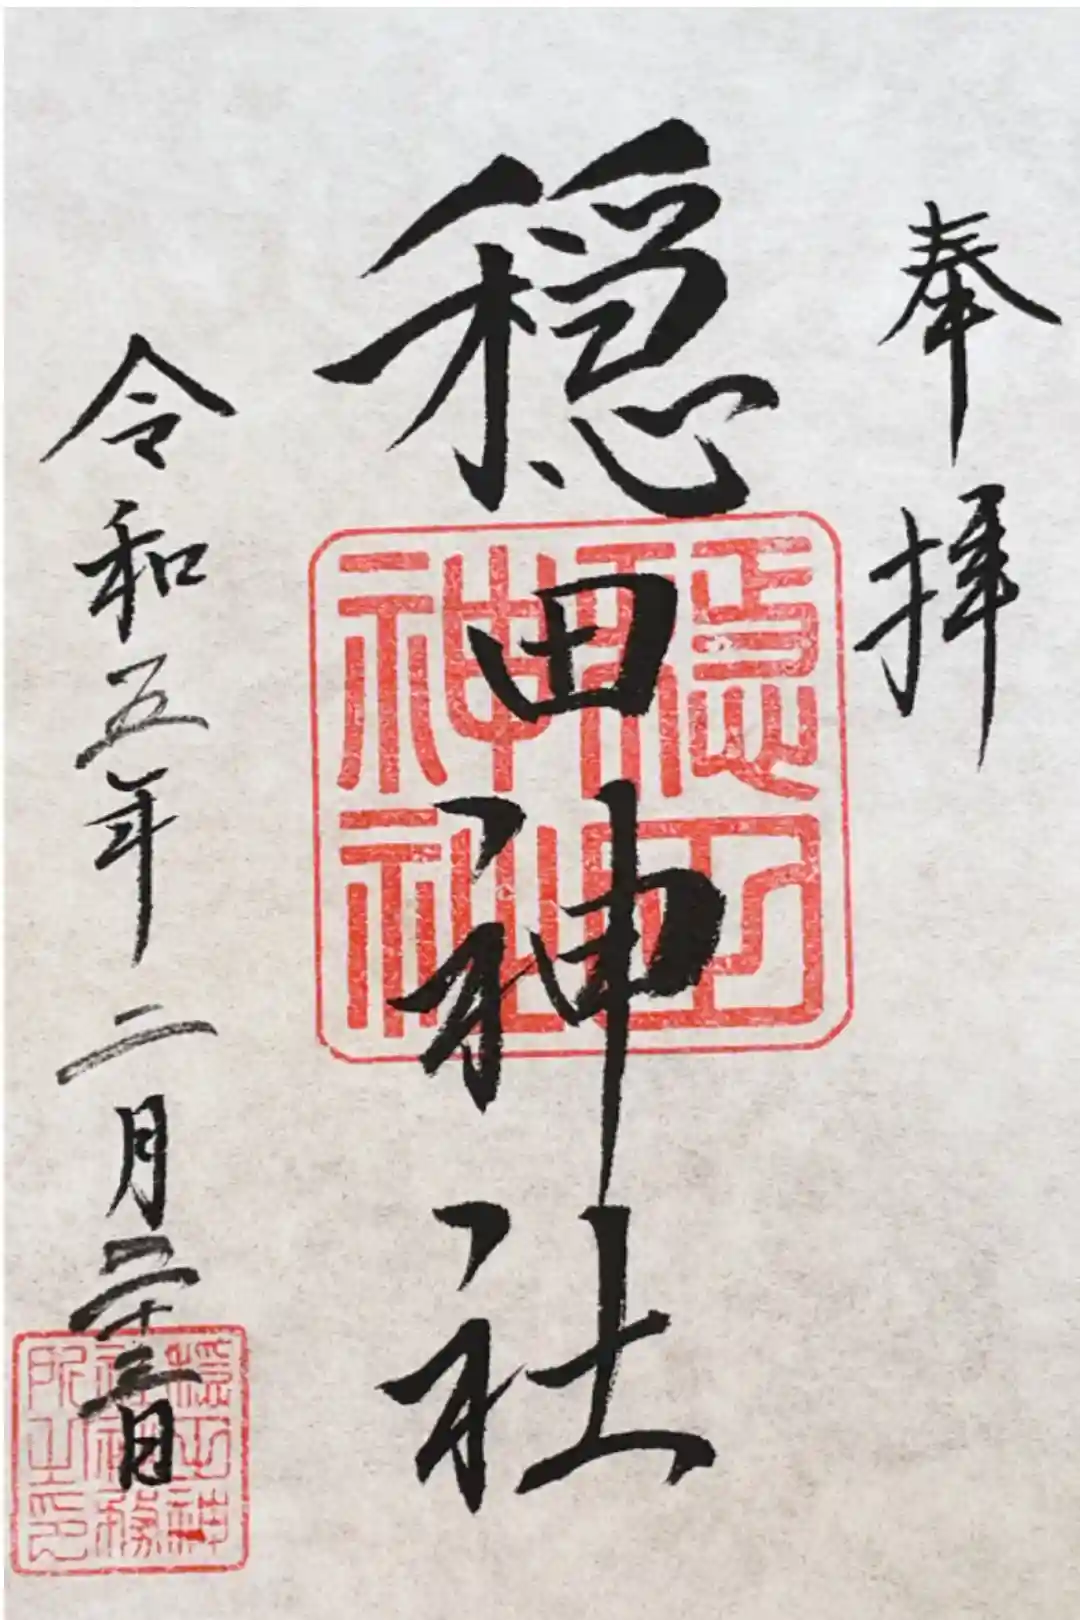 奉拝
穏田神社
令和五年二月二十三日
穏田神社
穏田神社社務所之印